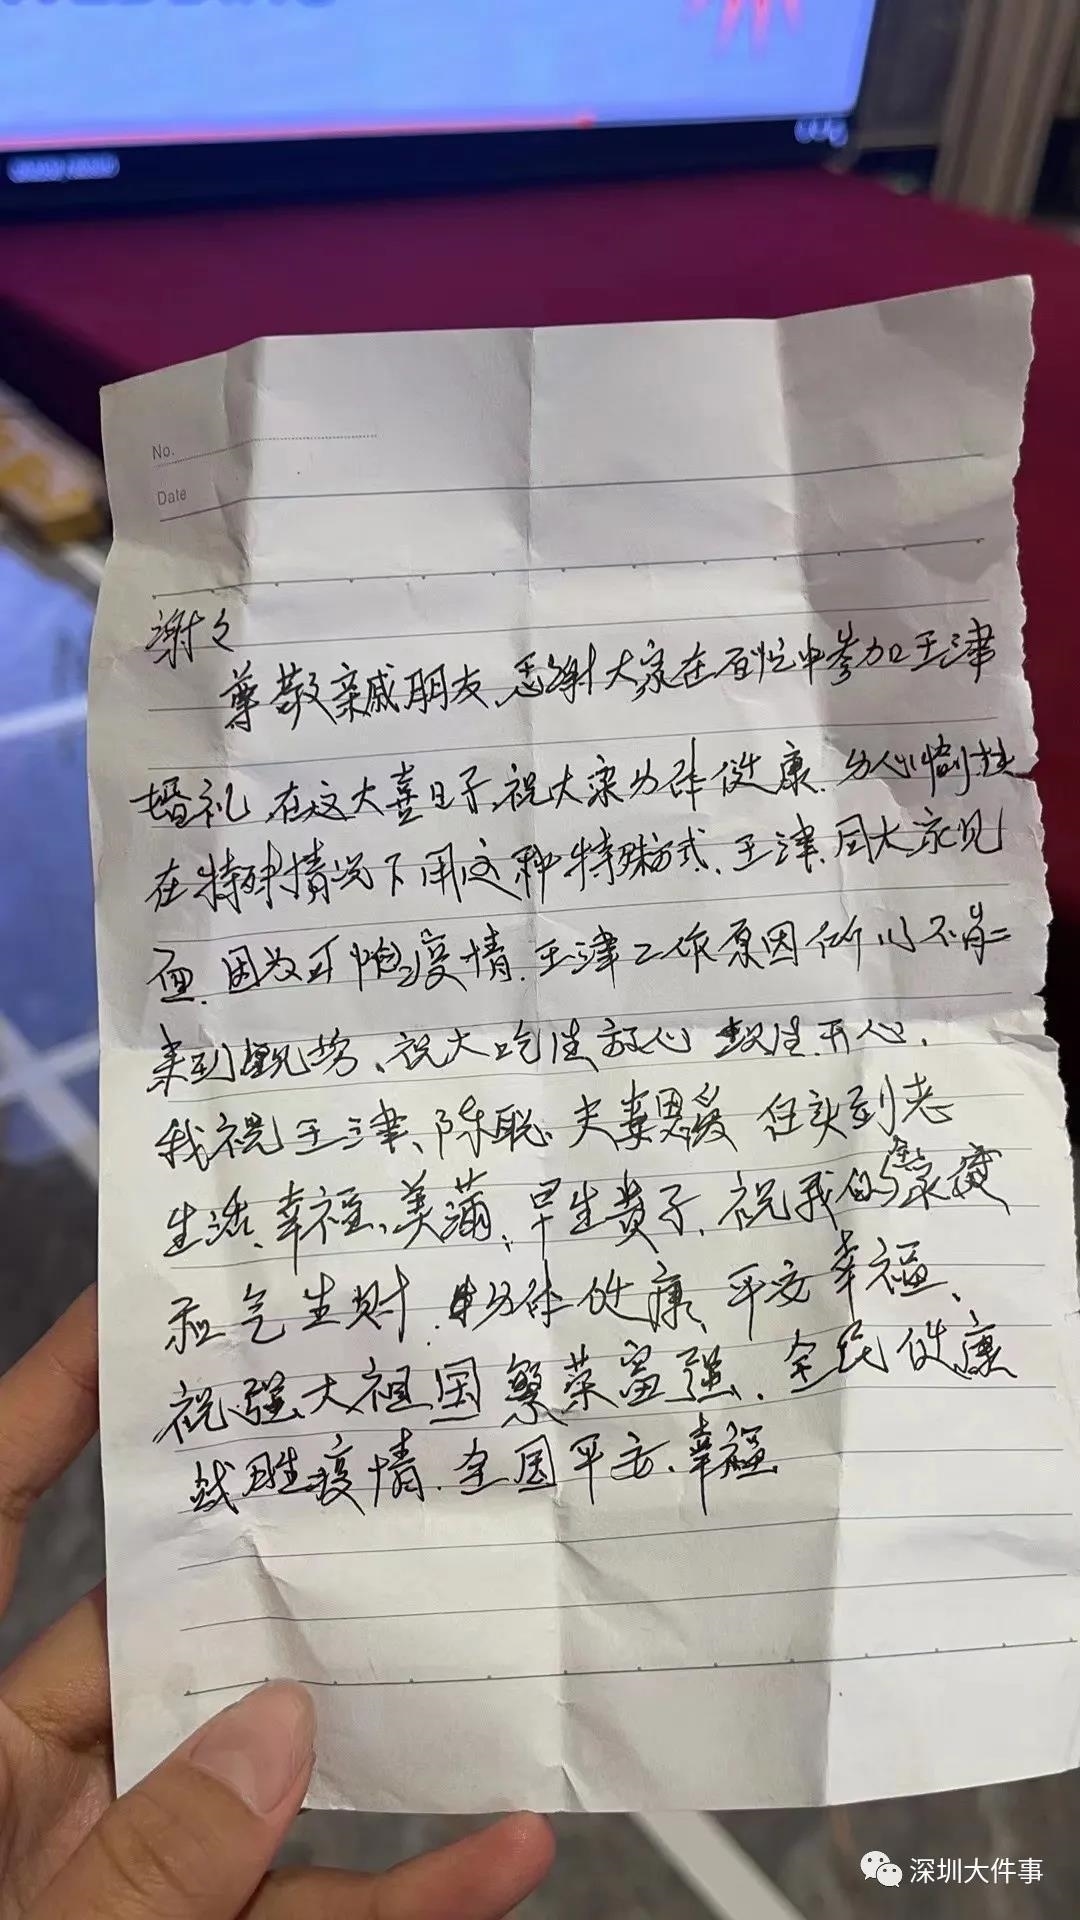 No.
Date
谢々
尊敬亲戚朋友、感谢大家在百忙中参加王津
婚礼 在这大喜日子、祝大家身体健康、身心愉快
在特殊情况下用这种特殊方式、王津、同大家见
面、因为可怕疫情、王津工作原因所以不能
来到现场、祝大吃住放心 开心、
我祝王津、陈聪、夫妻恩爱 任头到老
生活、幸福、美满、早生贵子、祝我的家庭
和气生财、身体健康、平安幸福、
祝强大祖国繁荣富强、全民健康
战胜疫情、全国平安、幸福
深圳大件事